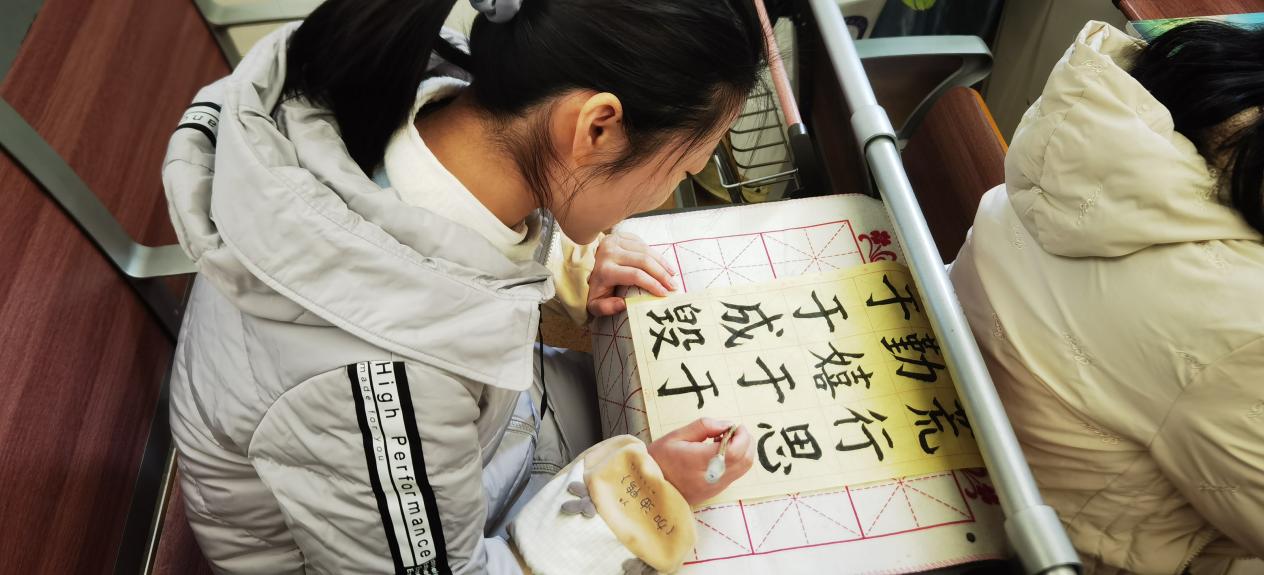 于勤荒
于嬉行
成于思
毁于
High Performance
made for you
加油鸭